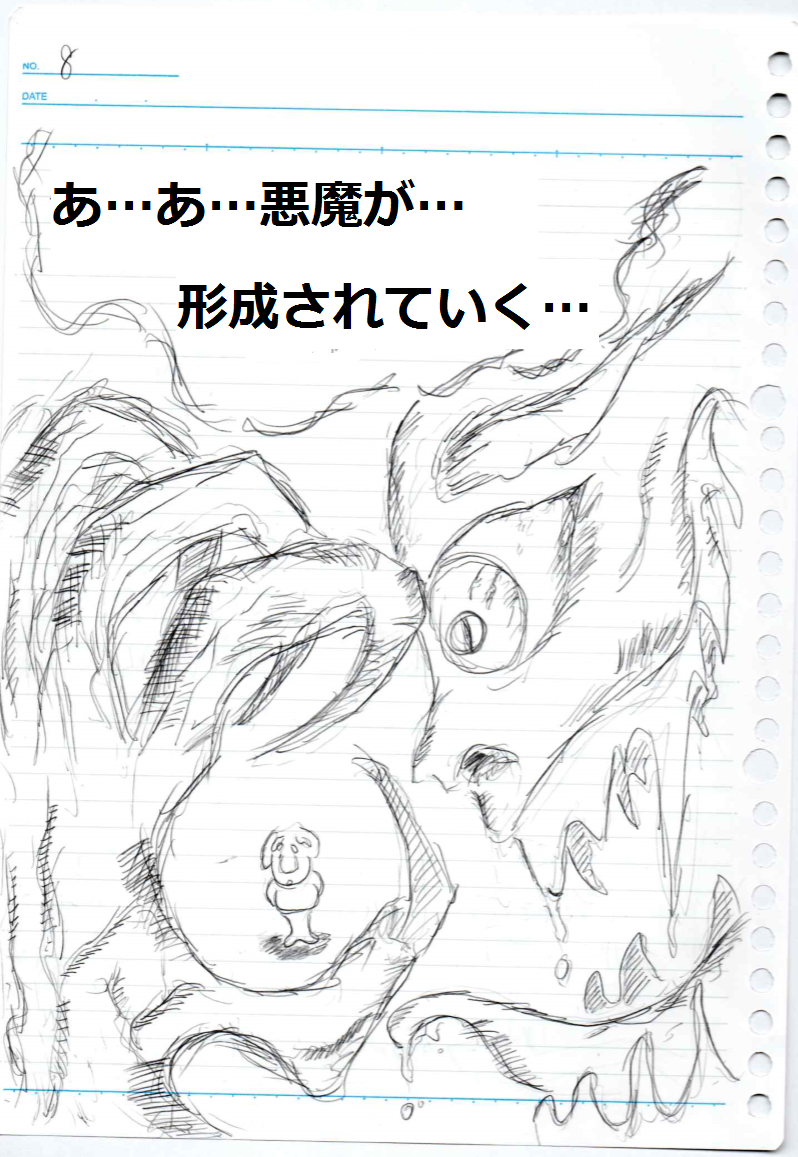 NO. 8
DATE
あ…あ…悪魔が…
形成されていく…